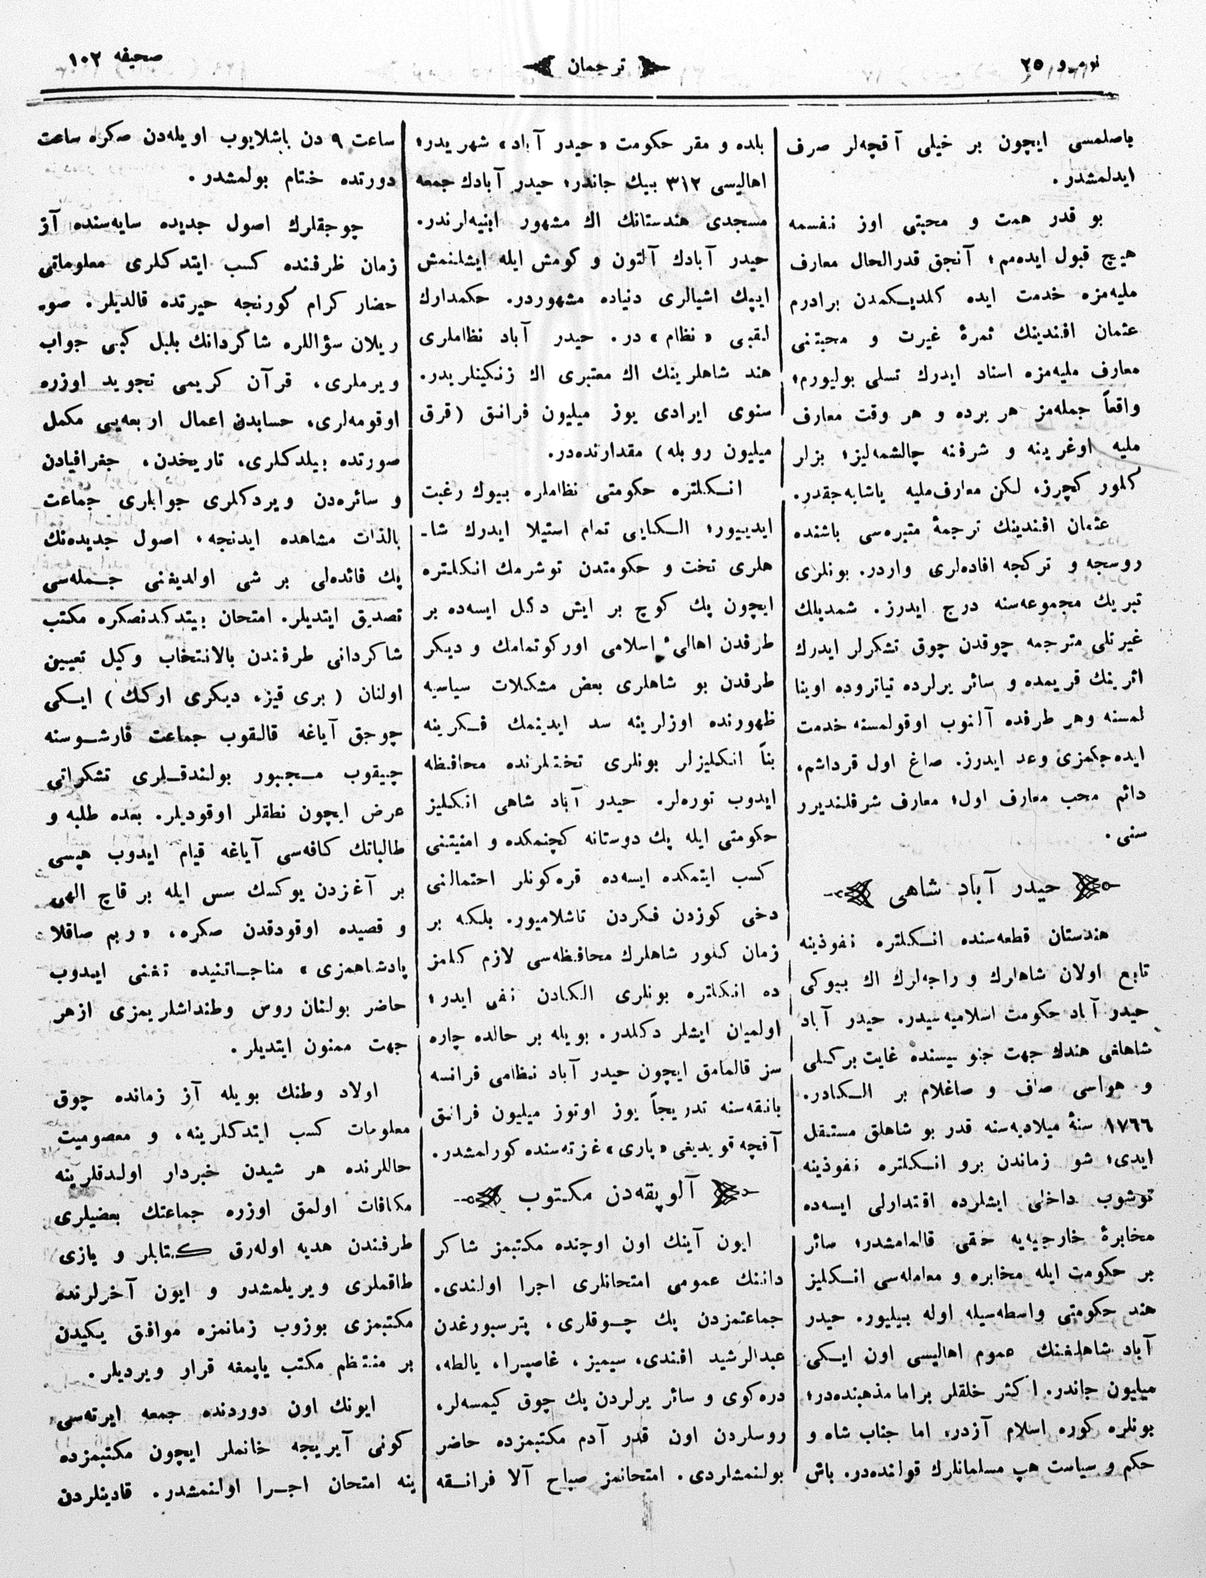 نومرو ٢٥
ترجمان
صحیفه ١٠٢
باصلمسی ایچون بر خیلی آقچه‌لر صرف
ایدلمشدر.
بو قدر همت و محبتی اوز نفسمه
هیچ قبول ایده‌مم؛ آنجق قدرالحال معارف
ملیه‌مزه خدمت ایده کلدیکمدن برادرم
عثمان افندینك ثمرهٔ غیرت و محبتنی
معارف ملیه‌مزه اسناد ایدرك تسلی بولیورم؛
واقعاً جمله‌مز هر یرده و هر وقت معارف
ملیه اوغرینه و شرفنه چالشمه‌لیز؛ بزلر
کلور کچرز، لکن معارف ملیه یاشایه‌جقدر.
عثمان افندینك ترجمهٔ متبره‌سی باشنده
روسجه و ترکجه افاده‌لری واردر. بونلری
تبریك مجموعه‌سنه درج ایدرز. شمدیلك
غیرتلی مترجمه چوقدن چوق تشکرلر ایدرك
اثرینك قریمده و سائر یرلرده تیاتروده اوینا
لمسنه وهر طرفده آلنوب اوقولمسنه خدمت
ایده‌جکمزی وعد ایدرز. صاغ اول قرداشم،
دائم محب معارف اول؛ معارف شرفلندیرر
سنی.
حیدر آباد شاهی
هندستان قطعه‌سنده انکلتره نفوذینه
تابع اولان شاهلرك و راجه‌لرك اك بیوکی
حیدر آباد حکومت اسلامیه‌سیدر. حیدر آباد
شاهلغی هندك جهت جنوبیسنده غایت برکتلی
و هواسی صاف و صاغلام بر الکادر.
١٧٦٦ سنهٔ میلادیه‌سنه قدر بو شاهلق مستقل
ایدی؛ شو زماندن برو انکلتره نفوذینه
توشوب داخلی ایشلرده اقتدارلی ایسه‌ده
مخابرهٔ خارجیه‌یه حقی قالمامشدر؛ سائر
بر حکومت ایله مخابره و معامله‌سی انکلیز
هند حکومتی واسطه‌سیله اوله بیلیور. حیدر
آباد شاهلغنك عموم اهالیسی اون ایکی
میلیون جاندر. اکثر خلقلر براما مذهبنده‌در؛
بونلره کوره اسلام آزدر، اما جناب شاه و
حکم و سیاست هپ مسلمانلرك قولنده‌در. باش
بلده و مقر حکومت «حیدر آباد» شهریدر؛
اهالیسی ٣١٢ بیك جاندر؛ حیدر آبادك جمعه
مسجدی هندستانك اك مشهور ابنیه‌لرندر.
حیدر آبادك آلتون و کومش ایله ایشلنمش
ایپك اشیالری دنیاده مشهوردر. حکمدارك
لقبی «نظام» در. حیدر آباد نظاملری
هند شاهلرینك اك معتبری اك زنکینلریدر.
سنوی ایرادی یوز میلیون فرانق (قرق
میلیون روبله) مقدارنده‌در.
انکلتره حکومتی نظاملره بیوك رغبت
ایدییور؛ الکایی تمام استیلا ایدرك شا-
هلری تخت و حکومتدن توشرمك انکلتره
ایچون پك کوچ بر ایش دکل ایسه‌ده بر
طرفدن اهالیٔ اسلامی اورکوتمامك و دیکر
طرفدن بو شاهلری بعض مشکلات سیاسیه
ظهورنده اوزلرینه سد ایدینمك فکرینه
بناً انکلیزلر بونلری تختلرنده محافظه
ایدوب توره‌لر. حیدر آباد شاهی انکلیز
حکومتی ایله پك دوستانه کچنمکده و امنیتنی
کسب ایتمکده ایسه‌ده قره‌کونلر احتمالنی
دخی کوزدن فکردن تاشلامیور. بلکه بر
زمان کلور شاهلرك محافظه‌سی لازم کلمز
ده انکلتره بونلری الکادن نفی ایدر؛
اولمیان ایشلر دکلدر. بویله بر حالده چاره
سز قالمامق ایچون حیدر آباد نظامی فرانسه
بانقه‌سنه تدریجاً یوز اوتوز میلیون فرانق
آقچه قویدیغی «پاری» غزته‌سنده کورلمشدر.
آلوپقه‌دن مکتوب
ایون آینك اون اوچنده مکتبمز شاکر
داننك عمومی امتحانلری اجرا اولندی.
جماعتمزدن پك چوقلری، پترسبورغدن
عبدالرشید افندی، سیمیز، غاصپرا، یالطه،
دره‌کوی و سائر یرلردن پك چوق کیمسه‌لر،
روسلردن اون قدر آدم مکتبمزده حاضر
بولنمشلردی. امتحانمز صباح آلا فرانقه
ساعت ٩ دن باشلایوب اویله‌دن صکره ساعت
دورتده ختام بولمشدر.
چوجقلرك اصول جدیده سایه‌سنده آز
زمان ظرفنده کسب ایتدکلری معلوماتی
حضار کرام کورنجه حیرتده قالدیلر. صو-
ریلان سؤاللره شاکردانك بلبل کبی جواب
ویرملری، قرآن کریمی تجوید اوزره
اوقومه‌لری، حسابدن اعمال اربعه‌یی مکمل
صورتده بیلدکلری، تاریخدن، جغرافیادن
و سائره‌دن ویردکلری جوابلری جماعت
بالذات مشاهده ایدنجه، اصول جدیده‌نك
پك فائده‌لی بر شی اولدیغنی جمله‌سی
تصدیق ایتدیلر. امتحان بیتدکدنصکره مکتب
شاکردانی طرفندن بالانتخاب وکیل تعیین
اولنان (بری قیز، دیکری ارکك) ایکی
چوجق آیاغه قالقوب جماعت قارشوسنه
چیقوب مجبور بولندقلری تشکراتی
عرض ایچون نطقلر اوقودیلر. بعده طلبه و
طالباتك کافه‌سی آیاغه قیام ایدوب هپسی
بر آغزدن یوکسك سس ایله بر قاچ الهی
و قصیده اوقودقدن صکره، «ربم صاقلا
پادشاهمزی» مناجاتنیده تغنی ایدوب
حاضر بولنان روس وطنداشلریمزی ازهر
جهت ممنون ایتدیلر.
اولاد وطنك بویله آز زمانده چوق
معلومات کسب ایتدکلرینه، و معصومیت
حاللرنده هر شیدن خبردار اولدقلرینه
مکافات اولمق اوزره جماعتك بعضیلری
طرفندن هدیه اوله‌رق کتابلر و یازی
طاقملری ویریلمشدر و ایون آخرلرنده
مکتبمزی بوزوب زمانمزه موافق یکیدن
بر منتظم مکتب یاپمغه قرار ویردیلر.
ایونك اون دوردنده جمعه ایرته‌سی
کونی آیریجه خانملر ایچون مکتبمزده
ینه امتحان اجرا اولنمشدر. قادینلردن